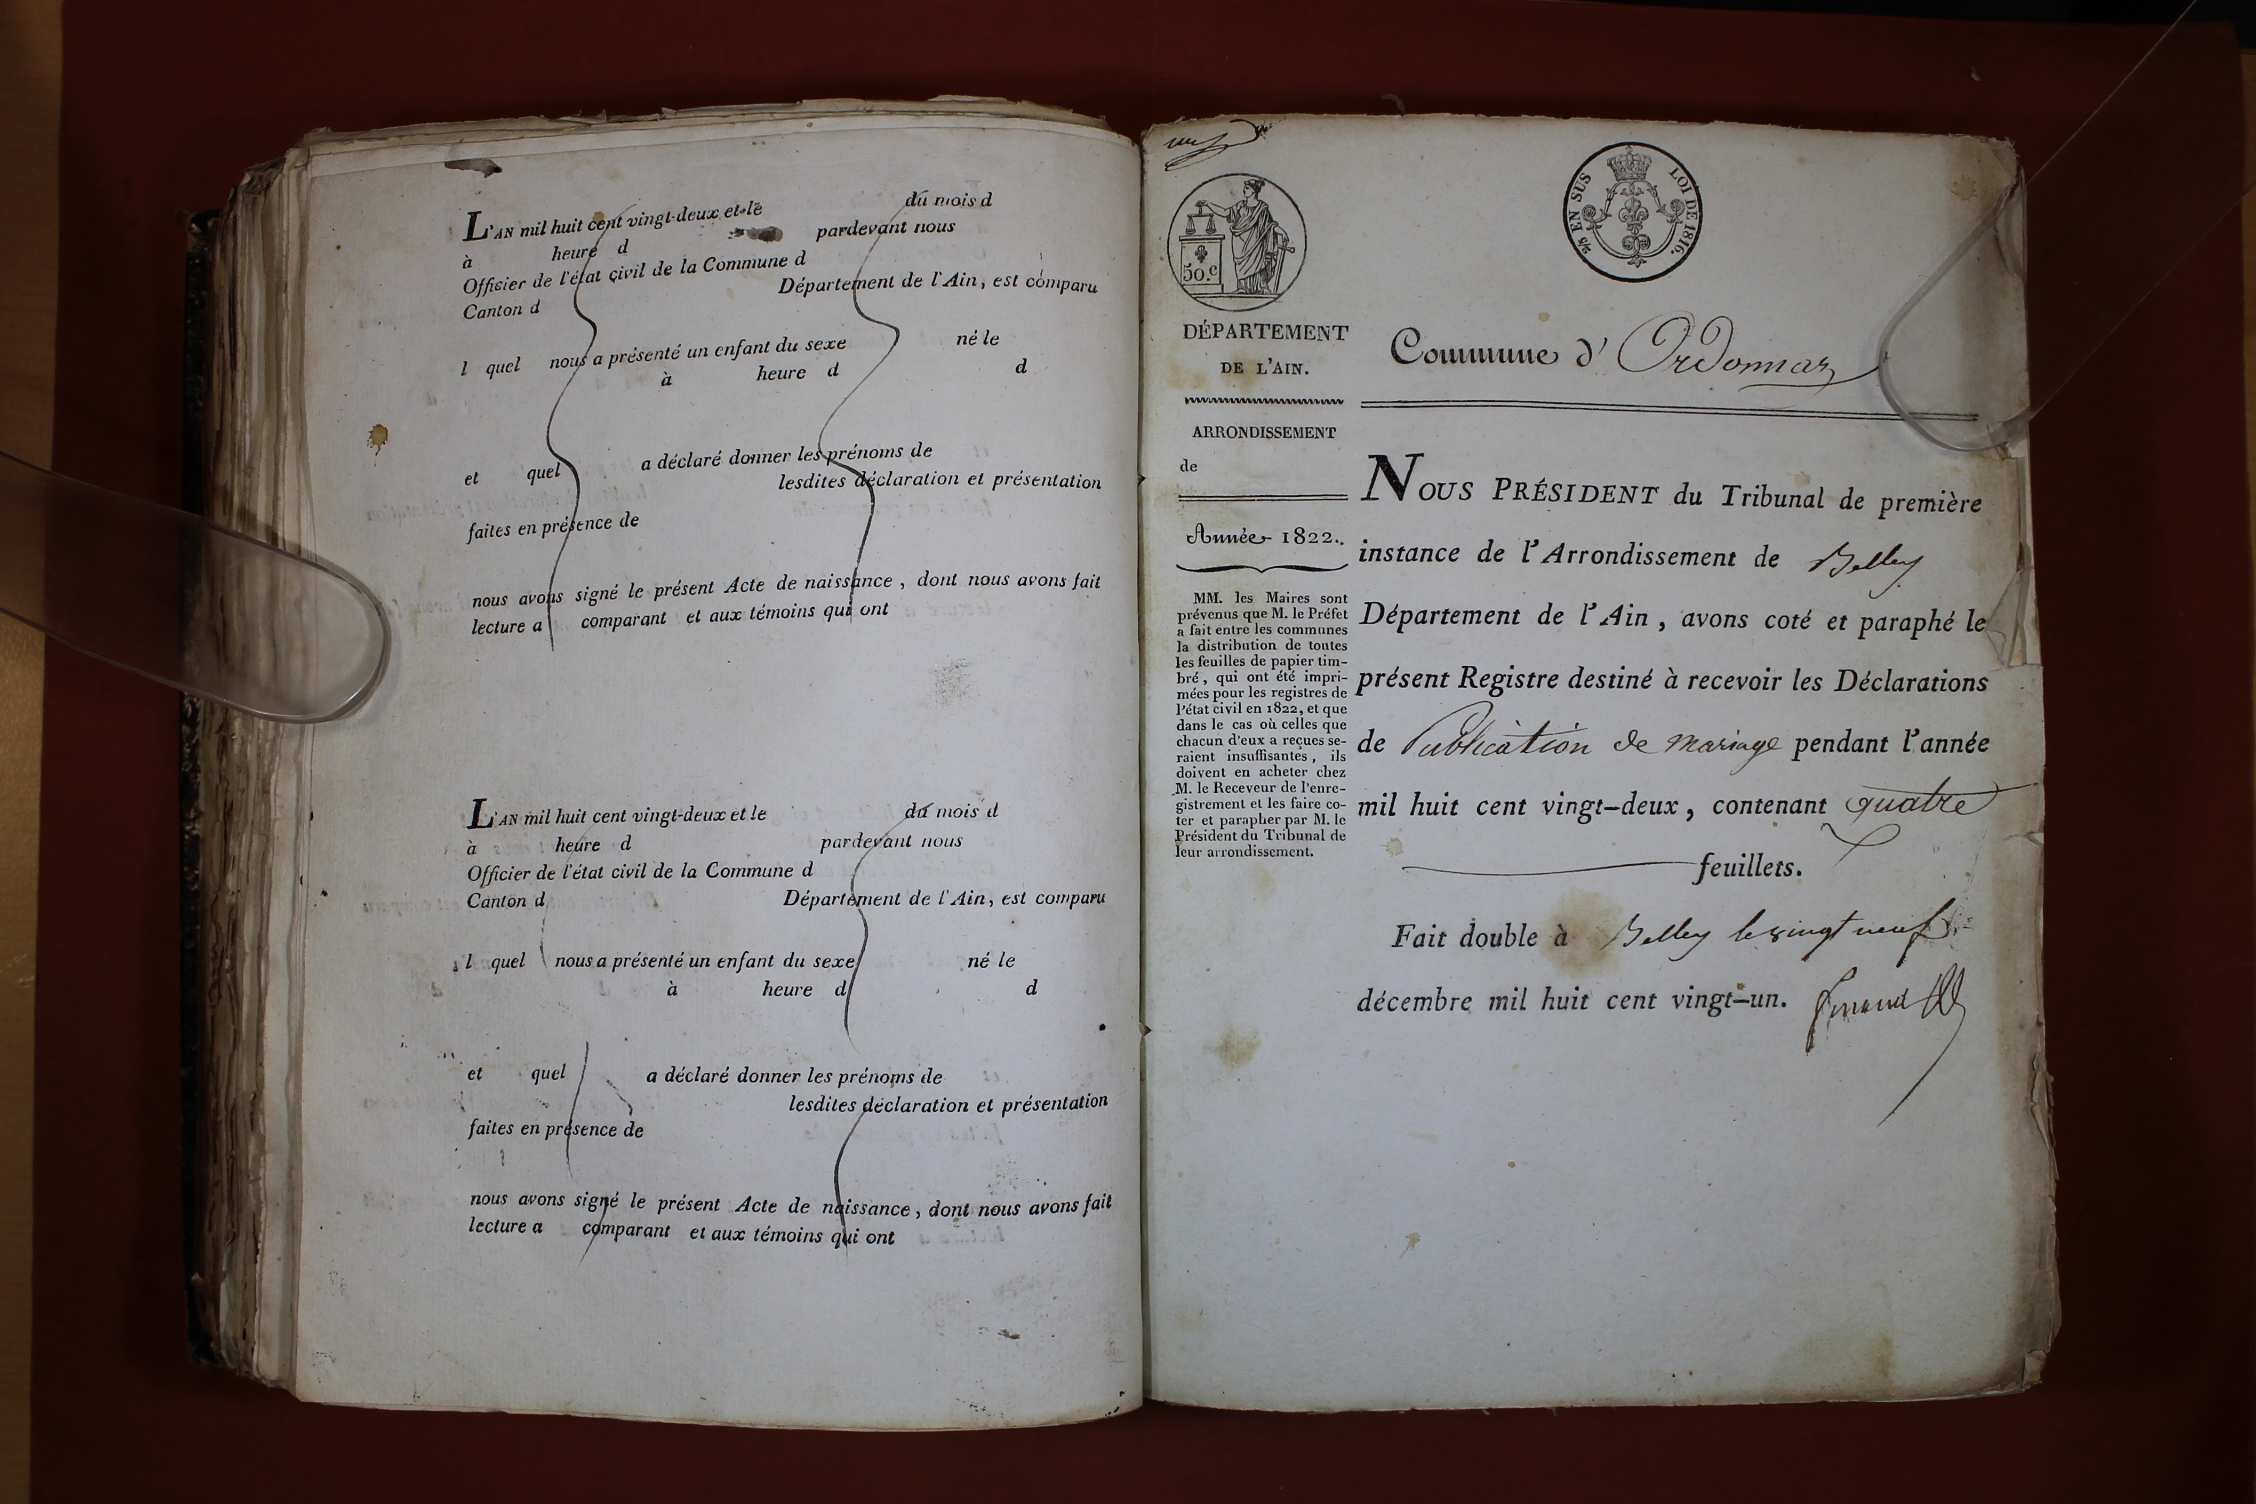 L'AN mil huit cent vingt-deux et le du mois d
à heure d pardevant nous
Officier de l'état civil de la Commune d
Canton d Département de l'Ain, est comparu
l quel nous a présenté un enfant du sexe né le
à heure d d
et quel a déclaré donner les prénoms de
lesdites déclaration et présentation
faites en présence de
nous avons signé le présent Acte de naissance, dont nous avons fait
lecture a comparant et aux témoins qui ont
L'AN mil huit cent vingt-deux et le du mois d
à heure d pardevant nous
Officier de l'état civil de la Commune d
Canton d Département de l'Ain, est comparu
l quel nous a présenté un enfant du sexe né le
à heure d d
et quel a déclaré donner les prénoms de
lesdites déclaration et présentation
faites en présence de
nous avons signé le présent Acte de naissance, dont nous avons fait
lecture a comparant et aux témoins qui ont
50.c
EN SUS LOI DE 1816.
DÉPARTEMENT
DE L'AIN.
ARRONDISSEMENT
de
Année 1822.
MM. les Maires sont
prévenus que M. le Préfet
a fait entre les communes
la distribution de toutes
les feuilles de papier tim-
bré, qui ont été impri-
mées pour les registres de
l'état civil en 1822, et que
dans le cas où celles que
chacun d'eux a reçues se-
raient insuffisantes, ils
doivent en acheter chez
M. le Receveur de l'enre-
gistrement et les faire co-
ter et parapher par M. le
Président du Tribunal de
leur arrondissement.
Commune d' Ordonnaz
NOUS PRÉSIDENT du Tribunal de première
instance de l'Arrondissement de Belley
Département de l'Ain, avons coté et paraphé le
présent Registre destiné à recevoir les Déclarations
de Publication de mariage pendant l'année
mil huit cent vingt-deux, contenant quatre
feuillets.
Fait double à Belley le vingt neuf
décembre mil huit cent vingt-un.